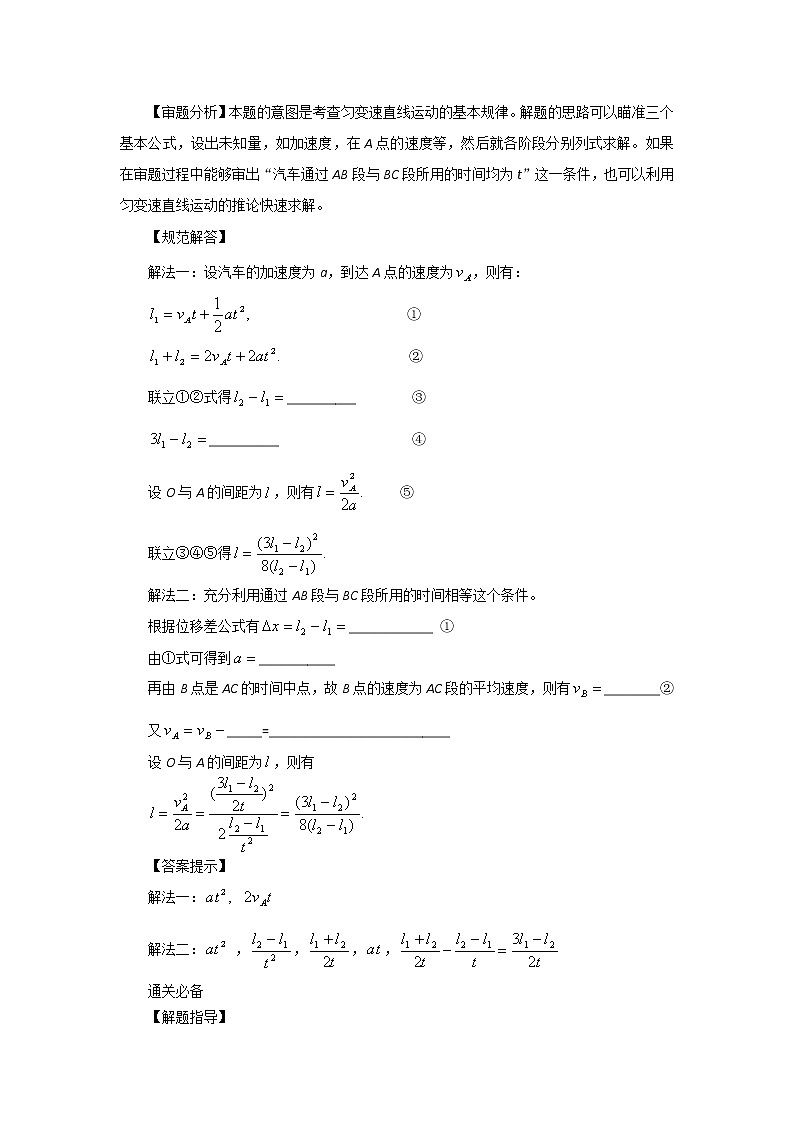 【审题分析】本题的意图是考查匀变速直线运动的基本规律。解题的思路可以瞄准三个
基本公式，设出未知量，如加速度，在 A 点的速度等，然后就各阶段分别列式求解。如果
在审题过程中能够审出“汽车通过 AB 段与 BC 段所用的时间均为 t”这一条件，也可以利用
匀变速直线运动的推论快速求解。
【规范解答】
解法一：设汽车的加速度为 a，到达 A 点的速度为 v_A，则有：
l_1 = v_A t + \frac{1}{2} at^2, ①
l_1 + l_2 = 2v_A t + 2at^2. ②
联立①②式得 l_2 − l_1 = __________ ③
3l_1 − l_2 = __________ ④
设 O 与 A 的间距为 l，则有 l = \frac{v_A^2}{2a}. ⑤
联立③④⑤得 l = \frac{(3l_1 − l_2)^2}{8(l_2 − l_1)}.
解法二：充分利用通过 AB 段与 BC 段所用的时间相等这个条件。
根据位移差公式有 Δx = l_2 − l_1 = ____________ ①
由①式可得到 a = ___________
再由 B 点是 AC 的时间中点，故 B 点的速度为 AC 段的平均速度，则有 v_B = ________②
又 v_A = v_B − _____=__________________________
设 O 与 A 的间距为 l，则有
l = \frac{v_A^2}{2a} = \frac{(\frac{3l_1 − l_2}{2t})^2}{2\frac{l_2 − l_1}{t^2}} = \frac{(3l_1 − l_2)^2}{8(l_2 − l_1)}.
【答案提示】
解法一：at^2, 2v_A t
解法二：at^2，\frac{l_2 − l_1}{t^2}，\frac{l_1 + l_2}{2t}，at，\frac{l_1 + l_2}{2t} − \frac{l_2 − l_1}{t} = \frac{3l_1 − l_2}{2t}
通关必备
【解题指导】